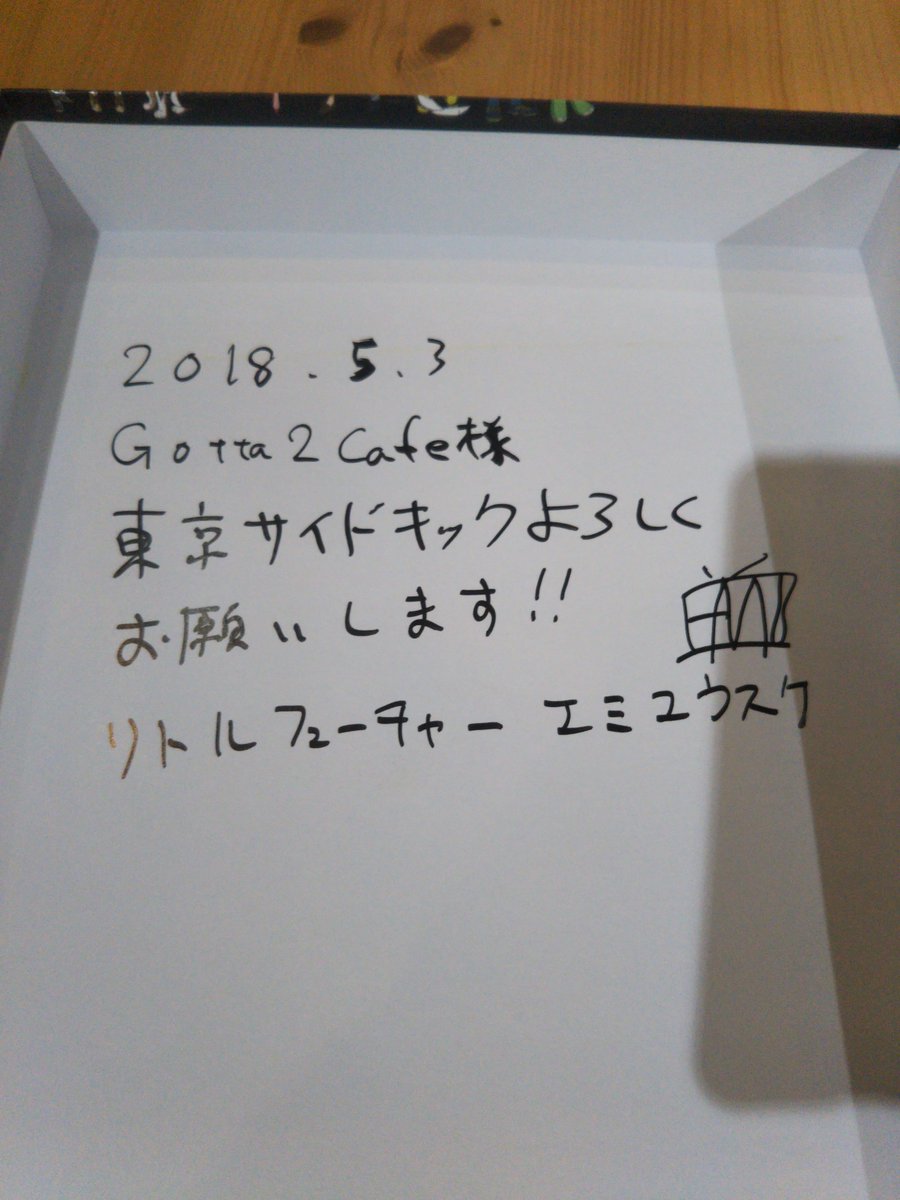 2018.5.3
Gotta2Cafe様
東京サイドキックよろしく
お願いします!!
リトルフューチャー エミユウスケ